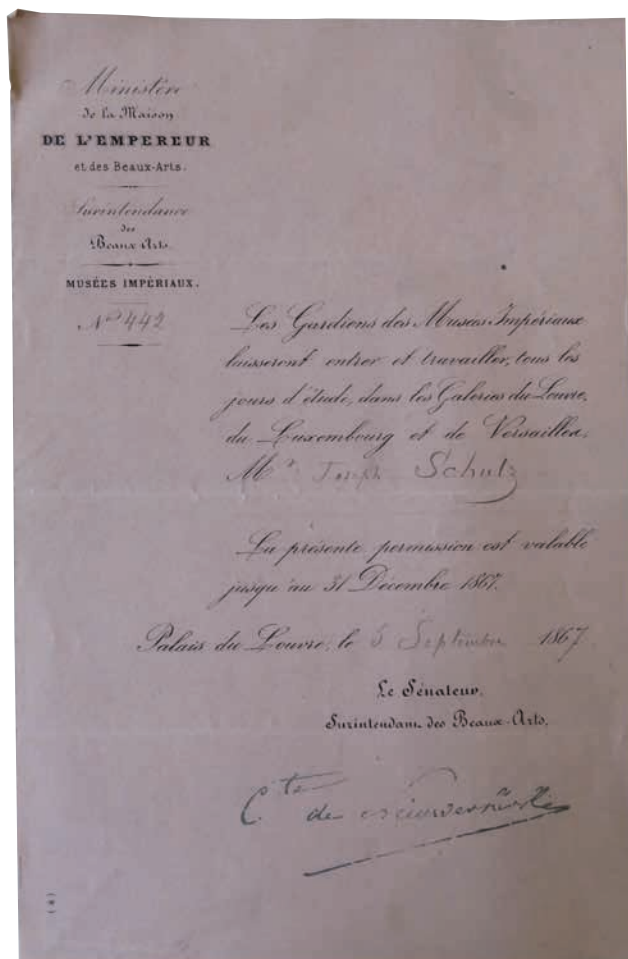 Ministère
de la Maison
DE L'EMPEREUR
et des Beaux-Arts.
Surintendance
des
Beaux-Arts.
MUSÉES IMPÉRIAUX.
No 442
Les Gardiens des Musées Impériaux
laisseront entrer et travailler, tous les
jours d'étude, dans les Galeries du Louvre,
du Luxembourg et de Versailles.
Mr Joseph Schulz
La présente permission est valable
jusqu'au 31 Décembre 1867.
Palais du Louvre, le 5 Septembre 1867
Le Sénateur,
Surintendant des Beaux-Arts,
Cte de Nieuwerkerke